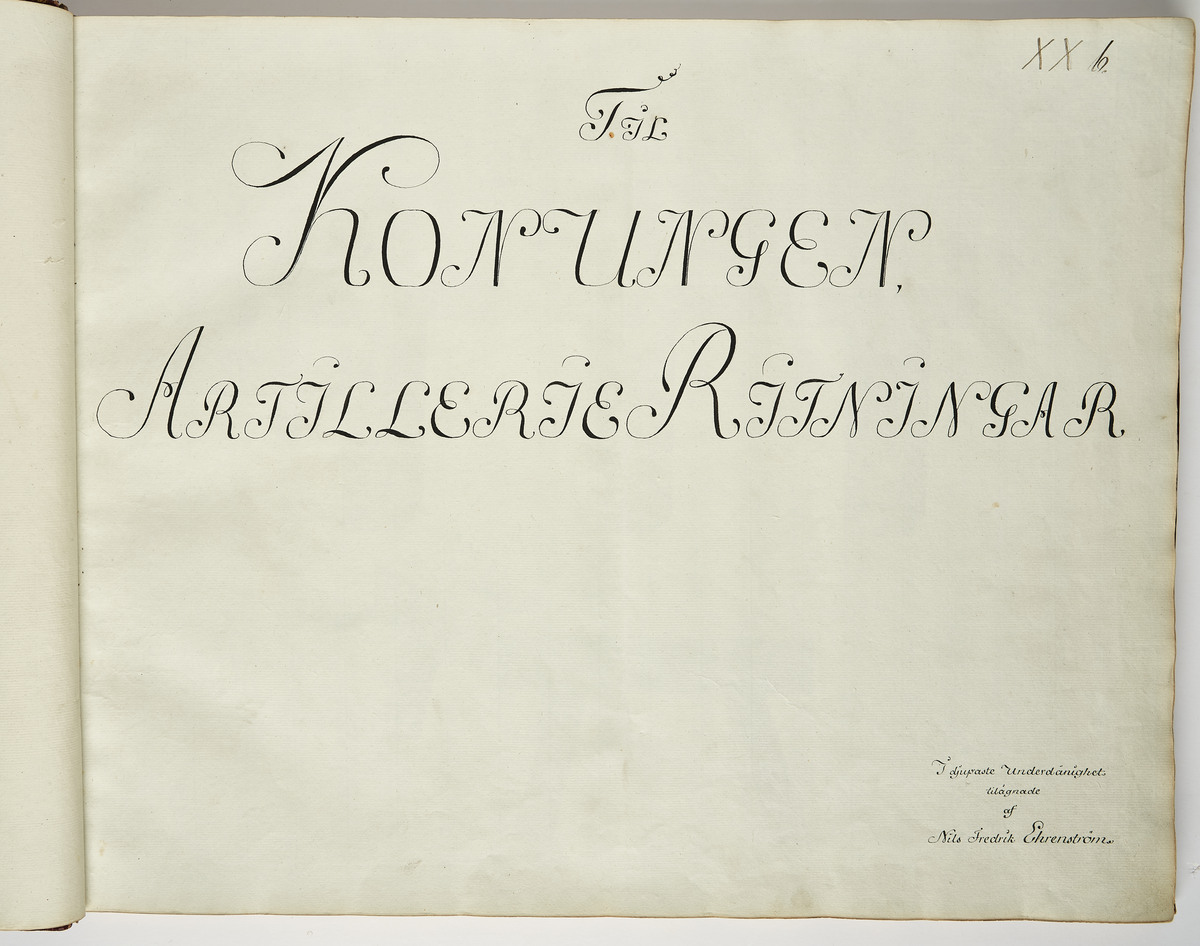 XX 6
TIL
KONUNGEN,
ARTILLERIE RITNINGAR
I djupaste Underdånighet
tilägnade
af
Nils Fredrik Ehrenström.